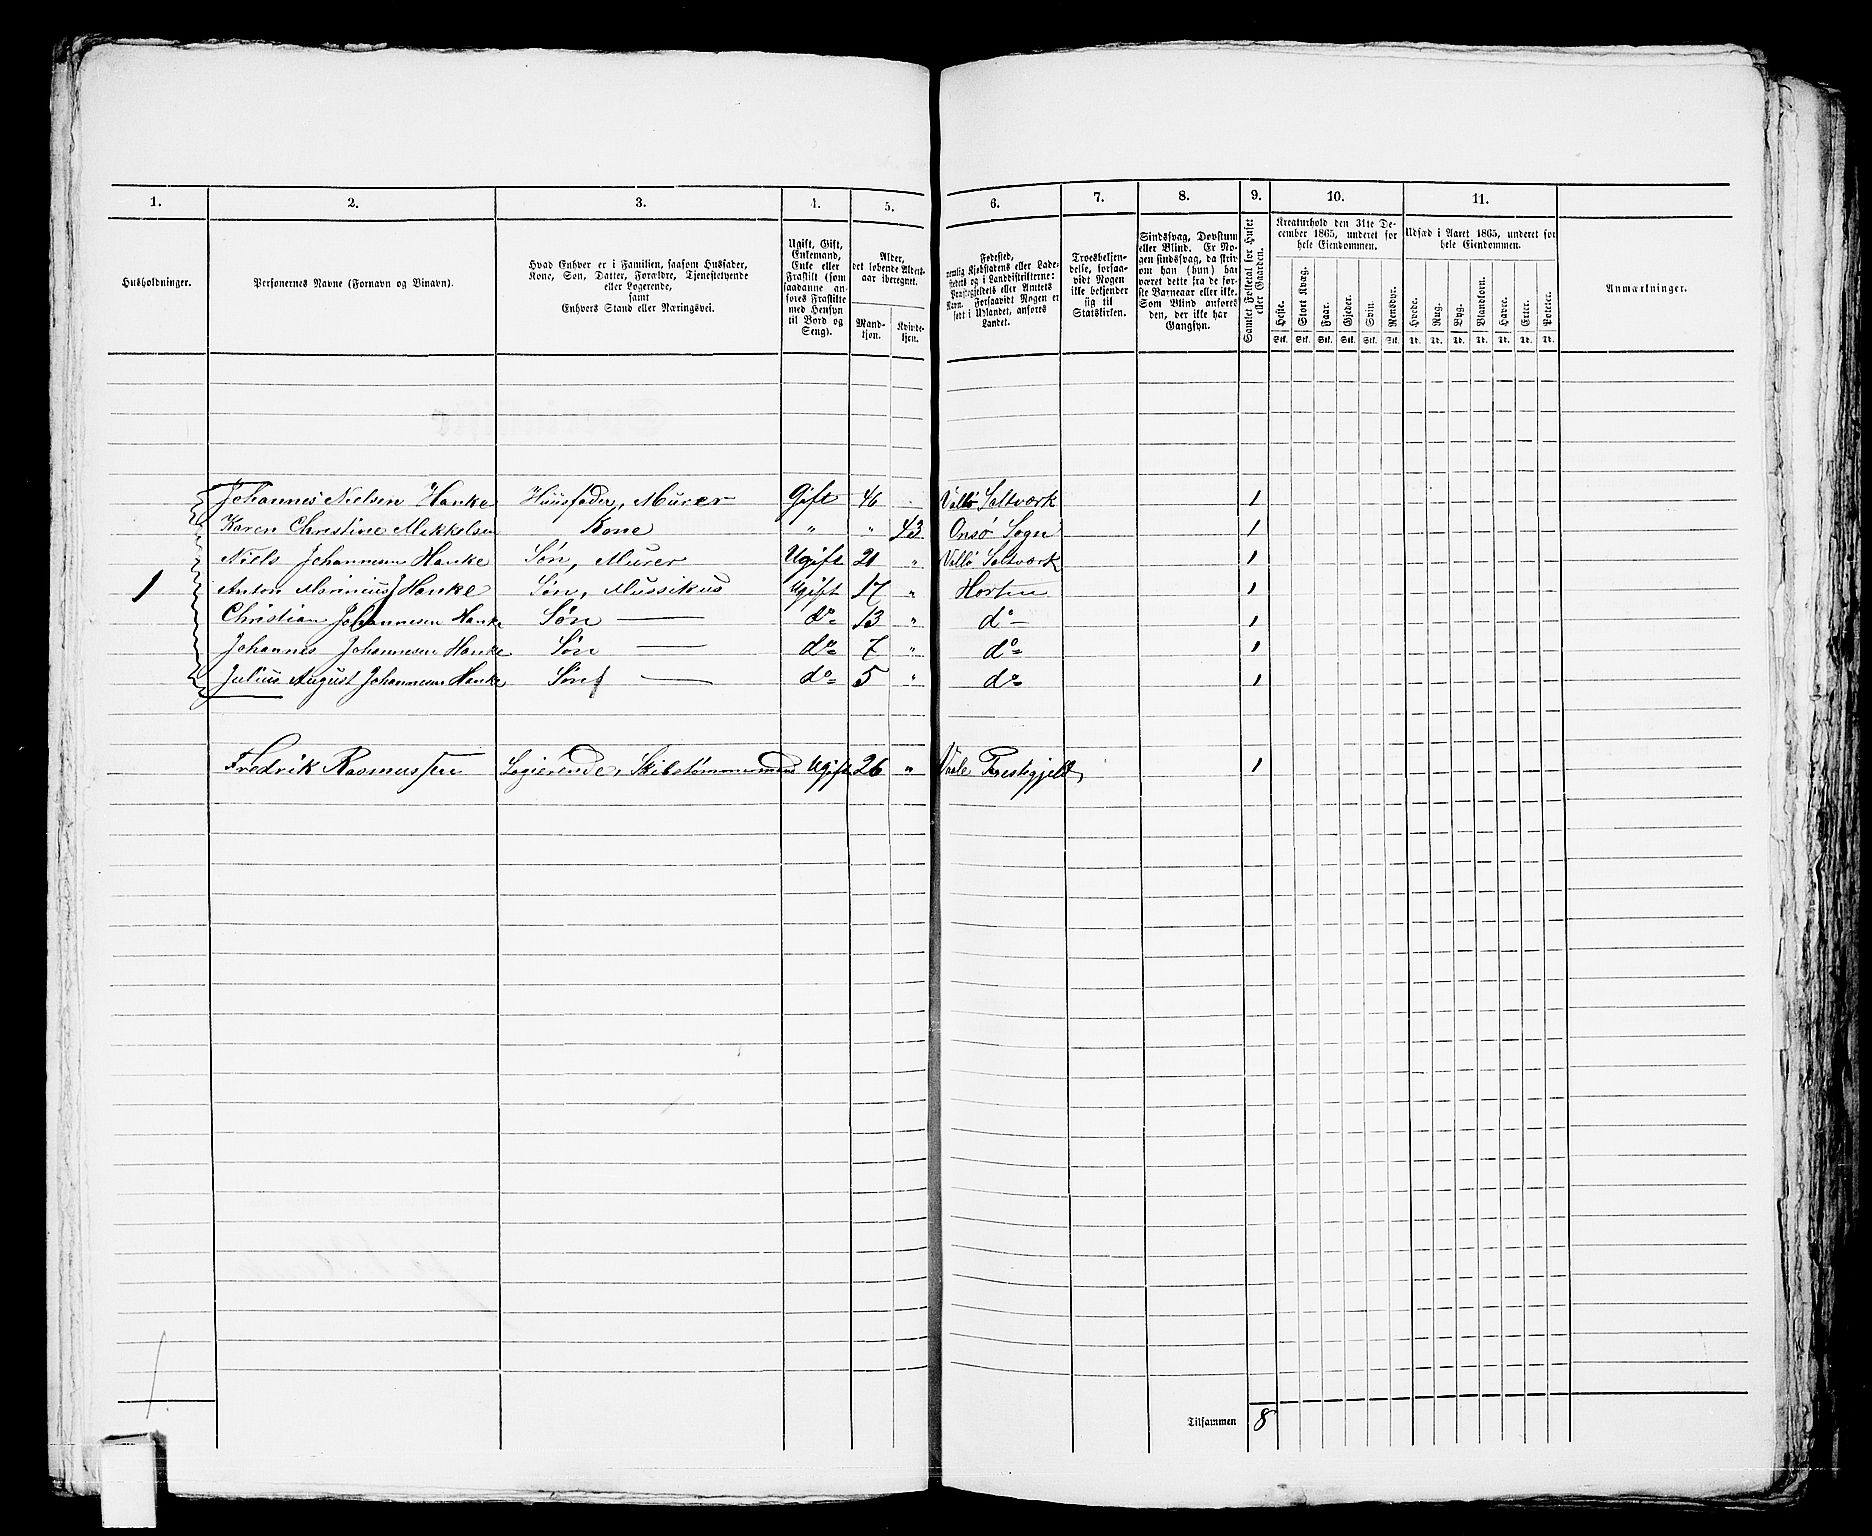 1. 2. 3. 4. 5. 6. 7. 8. 9. 10. 11.
Husholdninger.
Personernes Navne (Fornavn og Binavn).
Hvad Enhver er i Familien, saasom Husfader,
Kone, Søn, Datter, Forældre, Tjenestetyende
eller Logerende,
samt
Enhvers Stand eller Næringsvei.
Ugift, Gift,
Enkemand,
Enke eller
Fraskilt (som
saadanne an-
føres Fraskilte
med Hensyn
til Bord og
Seng).
Alder,
det løbende Alders-
aar iberegnet.
Mand-
kjøn.
Kvinde-
kjøn.
Fødested,
nemlig Kjøbstadens eller Lade-
stedets og i Landdistrikterne:
Præstegjeldets eller Amtets
Navn. Forsaavidt Nogen er
født i Udlandet, anføres
Landet.
Troesbekjen-
delse, forsaa-
vidt Nogen
ikke bekjender
sig til
Statskirken.
Sindssvag, Døvstum
eller Blind. Er No-
gen sindssvag, da skriv
om han (hun) har
været dette fra de før-
ste Barneaar eller ikke.
Som Blind anføres
den, der ikke har
Gangsyn.
Samlet Folketal for Huset
eller Gaarden.
Kreaturhold den 31te De-
cember 1865, underet for
hele Eiendommen.
Heste. Stort Kvæg. Faar. Gjeder. Svin. Rensdyr.
Stk. Stk. Stk. Stk. Stk. Stk.
Udsæd i Aaret 1865, underet for
hele Eiendommen.
Hvede. Rug. Byg. Blandkorn. Havre. Erter. Poteter.
Td. Td. Td. Td. Td. Td. Td.
Anmærkninger.
Johannes Nielsen Hanke Huusfader, Murer Gift 46 Vallø Saltværk 1
Karen Christine Mikkelsen Kone " " 43 Onsø Sogn 1
Niels Johannesen Hanke Søn, Murer Ugift 21 " Vallø Saltværk 1
1 Anton Marinius J Hanke Søn, Mussikus Ugift 17 " Horten 1
Christian Johannesen Hanke Søn — do 13 " do 1
Johannes Johannesen Hanke Søn — do 7 " do 1
Julius August Johannesen Hanke Søn — do 5 " do 1
Fredrik Rasmussen Logierende, Skibstømmermand Ugift 26 " Vaale Præstegjeld, 1
Tilsammen 8